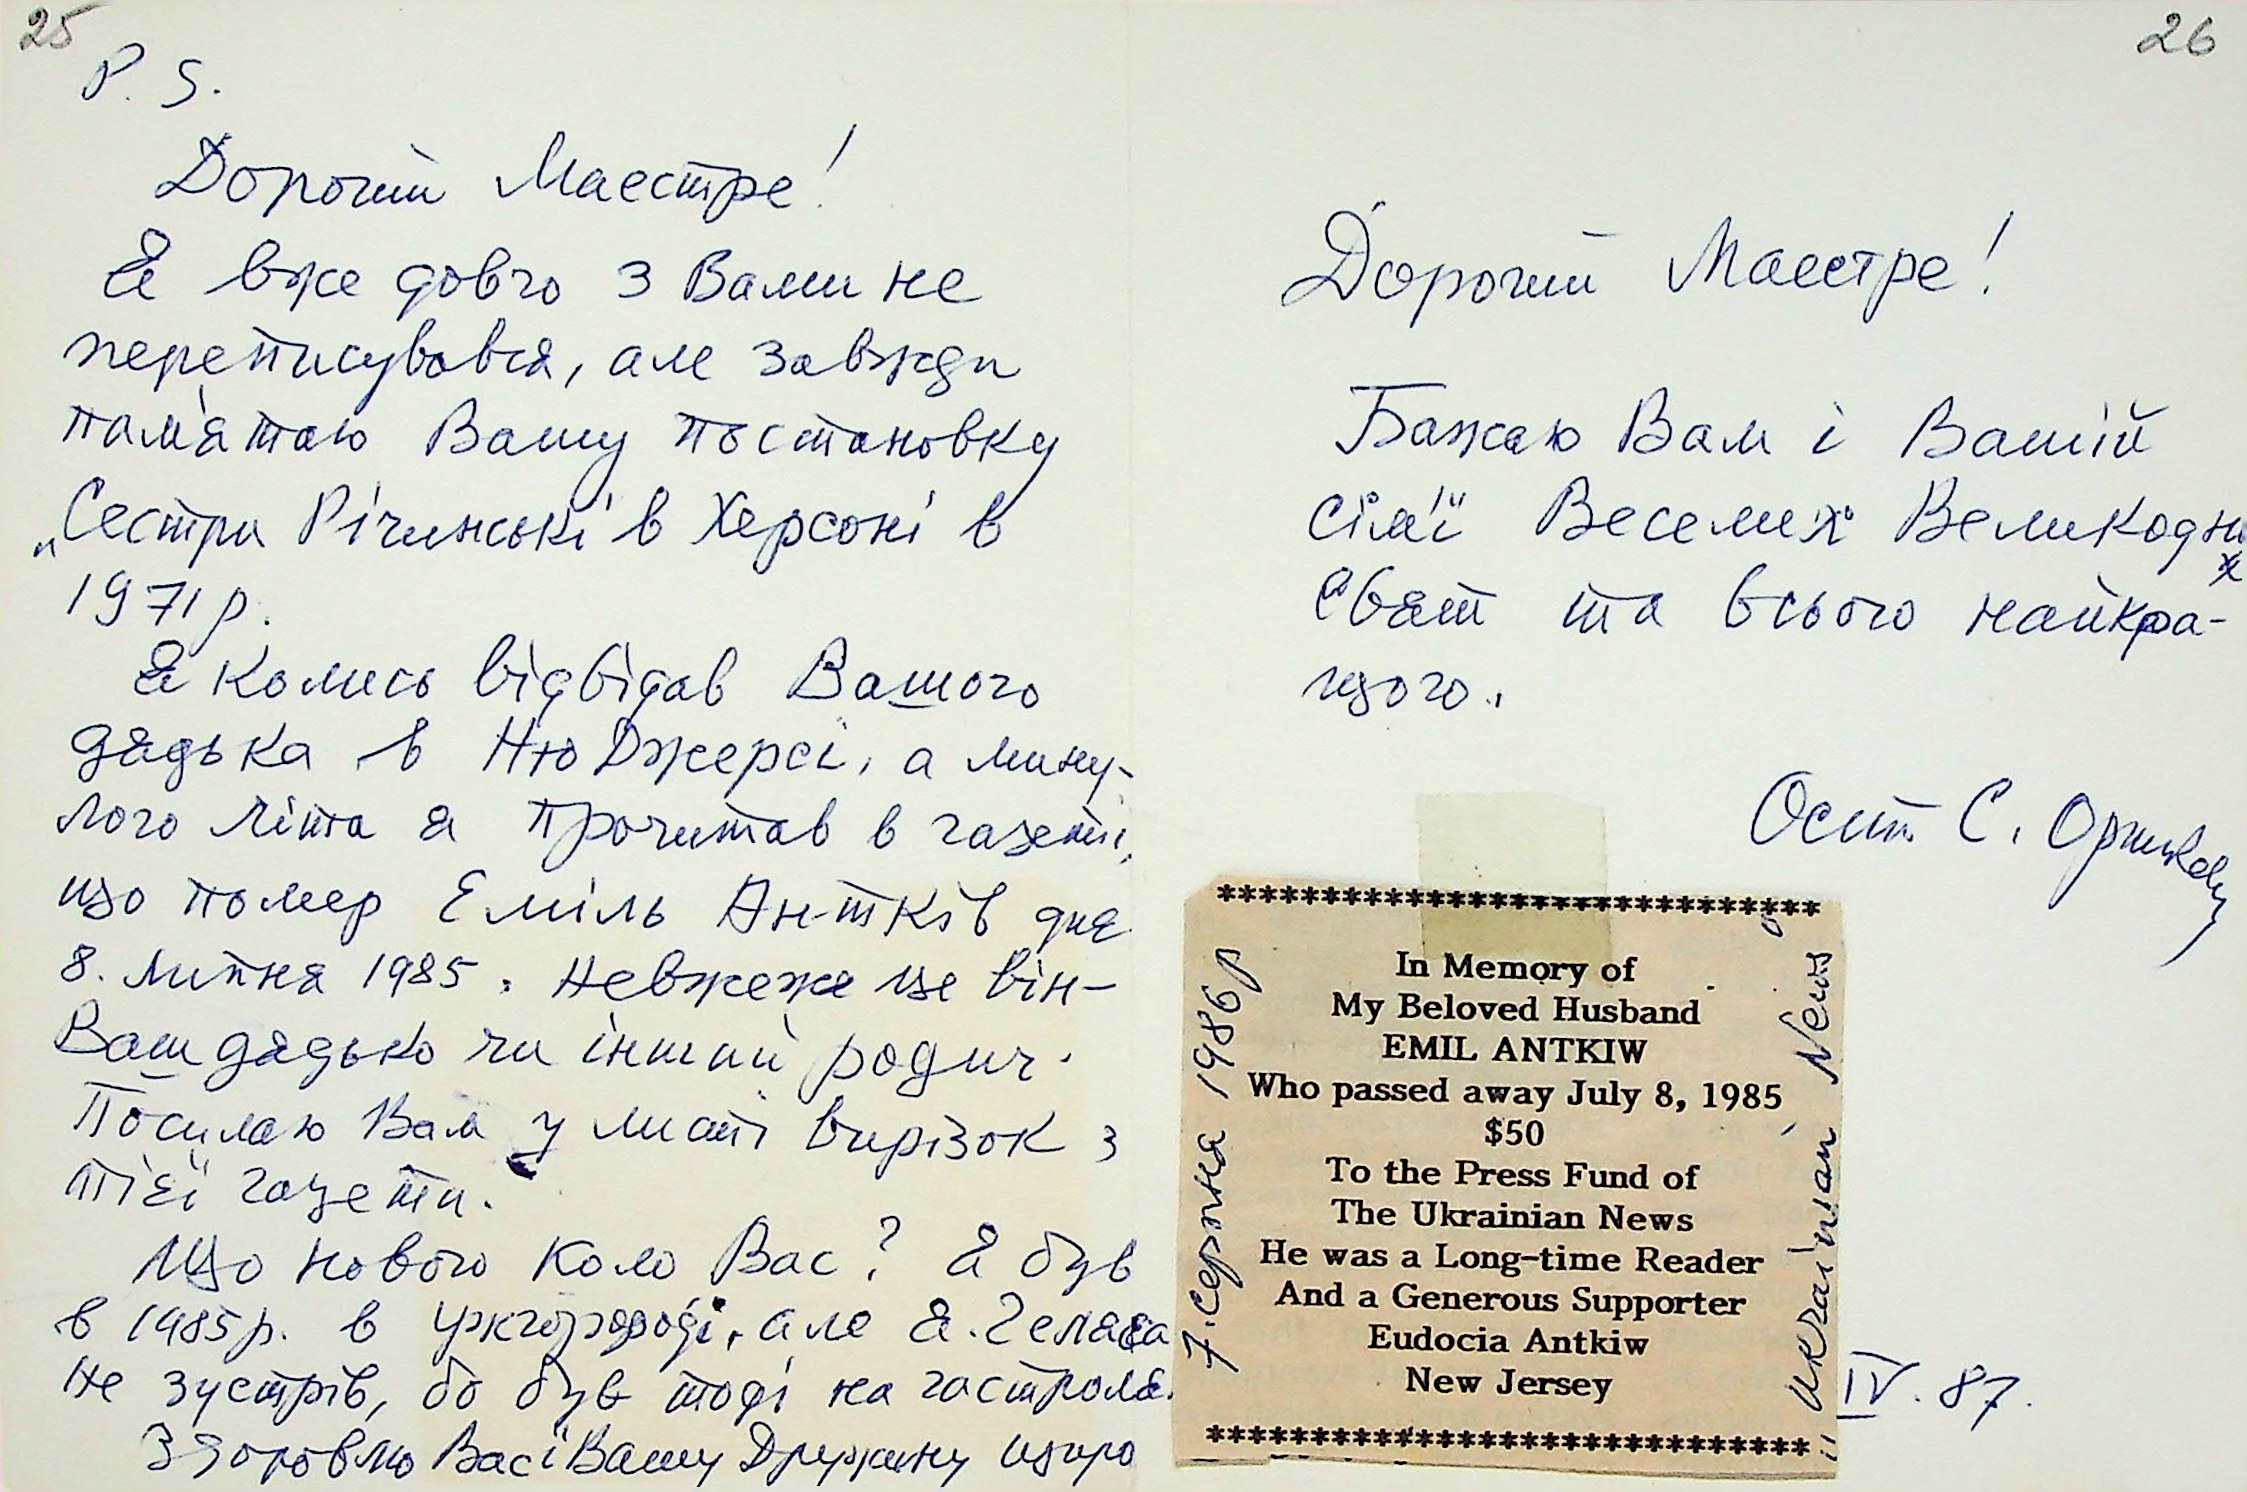 25
P. S.
Дорогий Маестре!
Я вже довго з Вами не
переписувався, але завжди
пам'ятаю Вашу постановку
„Сестри Річинські в Херсоні в
1971 р.
Я колись відвідав Вашого
дядька в Ню Джерсі, а мину-
лого літа я прочитав в газеті,
що помер Еміль Антків дня
8. липня 1985. Невжеже це він-
Ваш дядько чи інший родич.
Посилаю Вам у листі вирізок з
тієї газети.
Що нового коло Вас? Я був
в 1985р. в Ужгороді, але Я. Геляса
не зустрів, бо був тоді на гастроля.
Здоровлю Вас і Вашу Дружину щиро
26
Дорогий Маестре!
Бажаю Вам і Вашій
сім'ї Веселих Великодних
Свят та всього найкра-
щого.
Осип С.
7. Серпня 1986р
******************************
In Memory of
My Beloved Husband
EMIL ANTKIW
Who passed away July 8, 1985
$50
To the Press Fund of
The Ukrainian News
He was a Long-time Reader
And a Generous Supporter
Eudocia Antkiw
New Jersey
******************************
„Ukrainian News"
IV. 87.